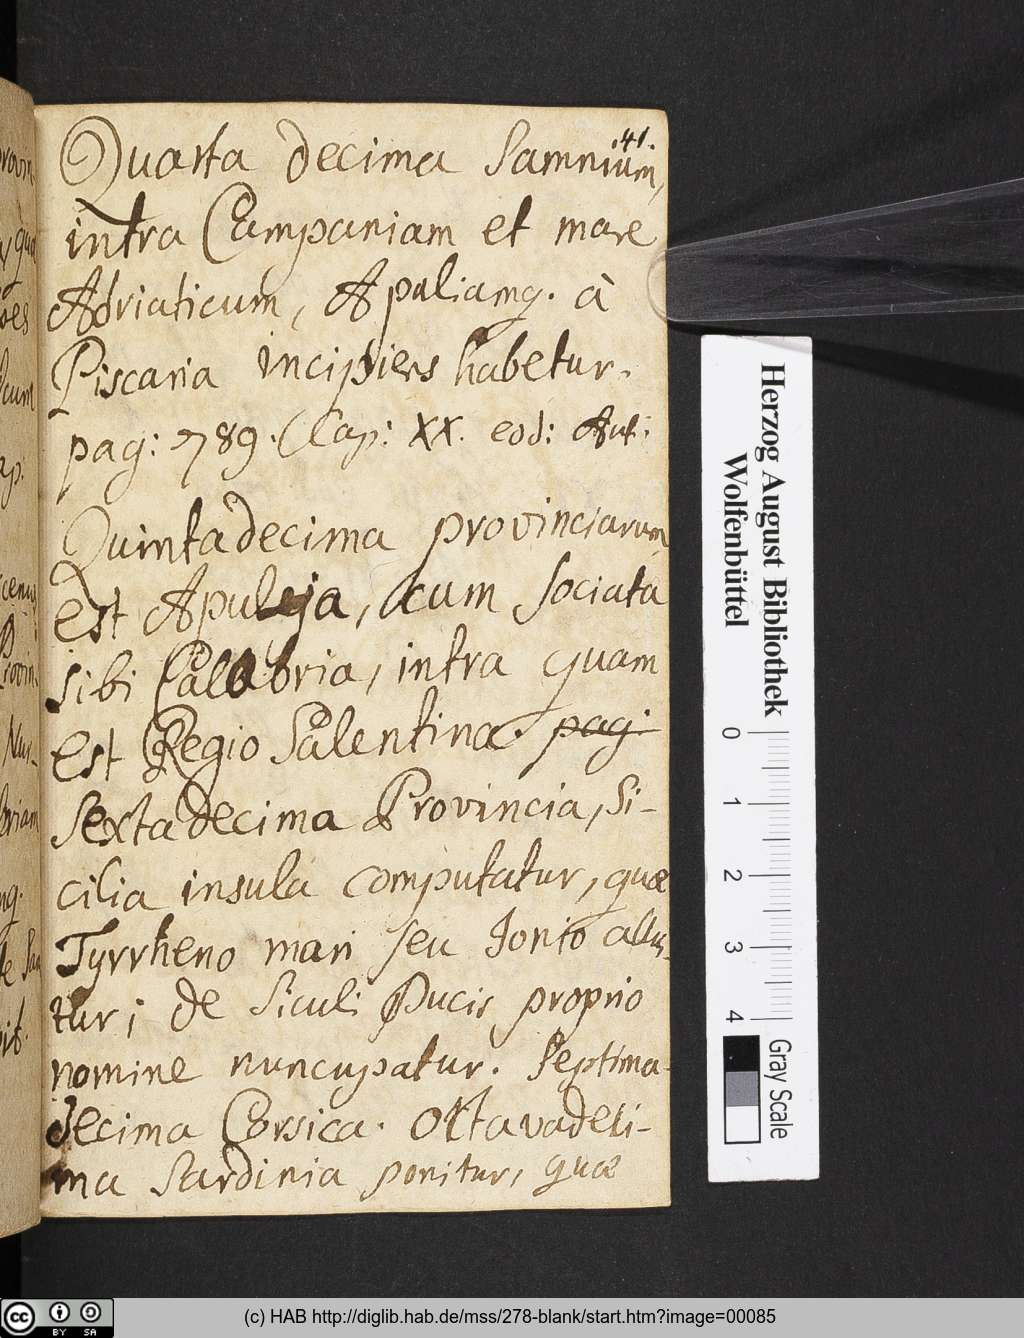 .41.
Quarta decima Samnium,
intra Campaniam et mare
Adriaticum, Apuliamq. à
Piscaria incipiens habetur.
pag: 789. Cap: XX. eod: Aut:
Quintadecima provinciarum
est Apuleja, cum sociata
sibi Calabria, intra quam
est Regio Salentina. pag:
Sextadecima Provincia, Si-
cilia insula computatur, quae
Tyrrheno mari seu Jonio allui-
tur; de Siculi Ducis proprio
nomine nuncupatur. Septima-
decima Corsica. Octavadeci-
ma Sardinia ponitur, quae
Herzog August Bibliothek
Wolfenbüttel
0 1 2 3 4
Gray Scale
cc BY SA
(c) HAB http://diglib.hab.de/mss/278-blank/start.htm?image=00085